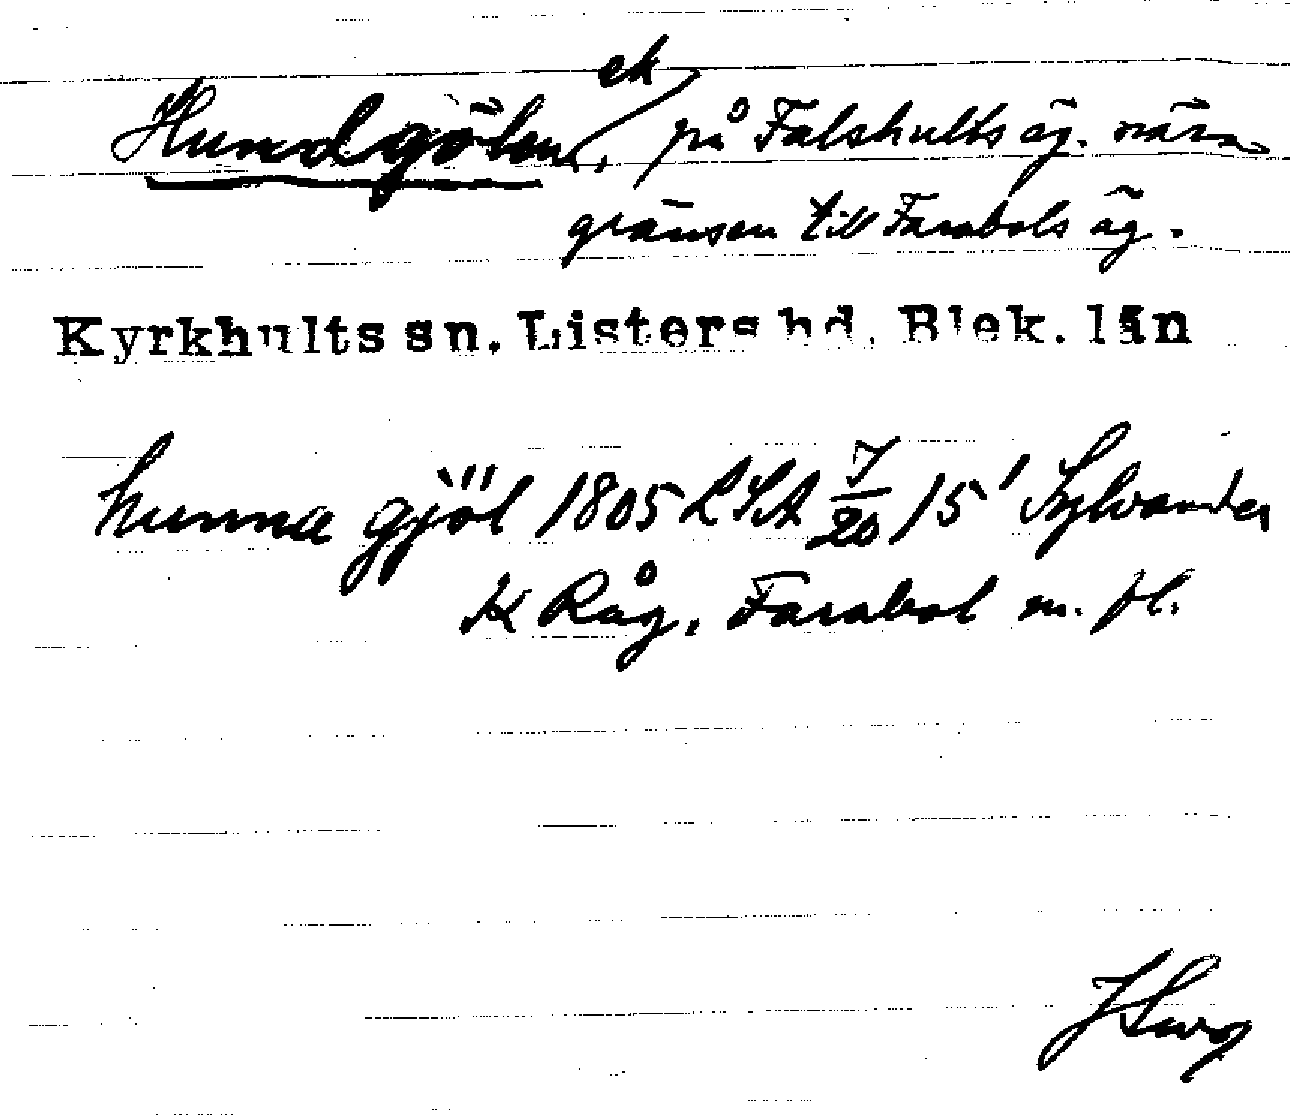 Hundgölen, ek på Falshults äg. nära
gränsen till Farabols äg.
Kyrkhults sn. Listers hd. Blek. län
hunna gjöl 1805 LSA 7/20 15' Sylvander
K Råg, Farabol m. fl.